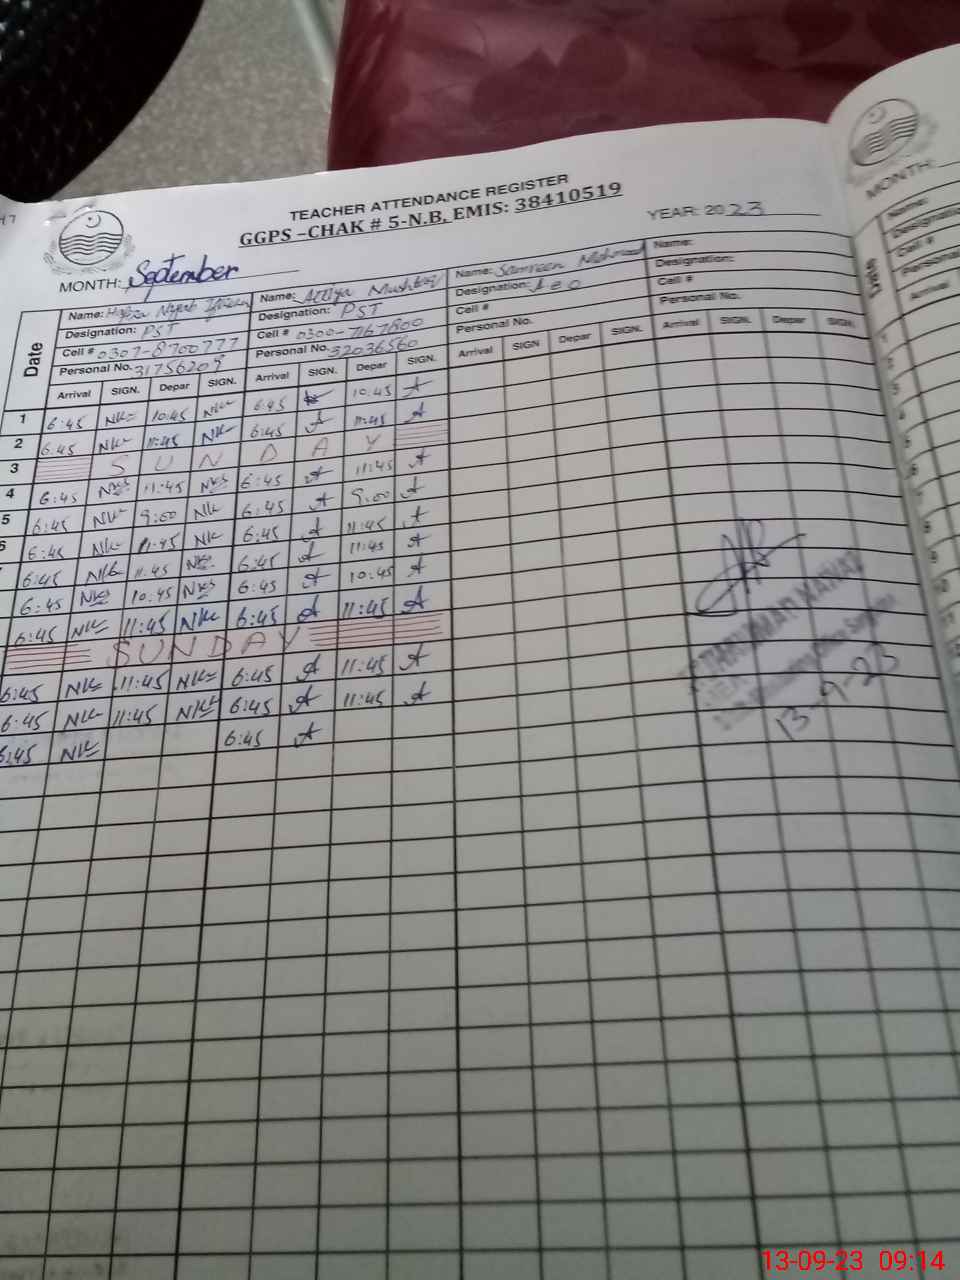 TEACHER ATTENDANCE REGISTER
GGPS –CHAK # 5-N.B, EMIS: 38410519
MONTH: September
YEAR: 2023
Date
Name: Attiya Mushtaq
Name: Samreen
Name:
Designation: PST
Designation: PST
Designation: AEO
Designation:
Cell # 0307-8700777
Cell # 0300-7167800
Cell #
Cell #
Personal No. 31756209
Personal No. 32036560
Personal No.
Personal No.
Arrival SIGN. Depar SIGN. Arrival SIGN. Depar SIGN. Arrival SIGN Depar SIGN. Arrival SIGN. Depar SIGN.
1 6:45 10:45 6:45 10:45
2 6:45 11:45 6:45 11:45
3 S U N D A Y
4 6:45 11:45 6:45 11:45
5 6:45 9:00 6:45 9:00
6:45 11:45 6:45 11:45
6:45 11:45 6:45 11:45
6:45 10:45 6:45 10:45
6:45 11:45 6:45 11:45
SUNDAY
6:45 11:45 6:45 11:45
6:45 11:45 6:45 11:45
6:45 6:45
13-9-23
MONTH:
Name:
Designation
Cell #
Personal
Date
Arrival
13-09-23 09:14